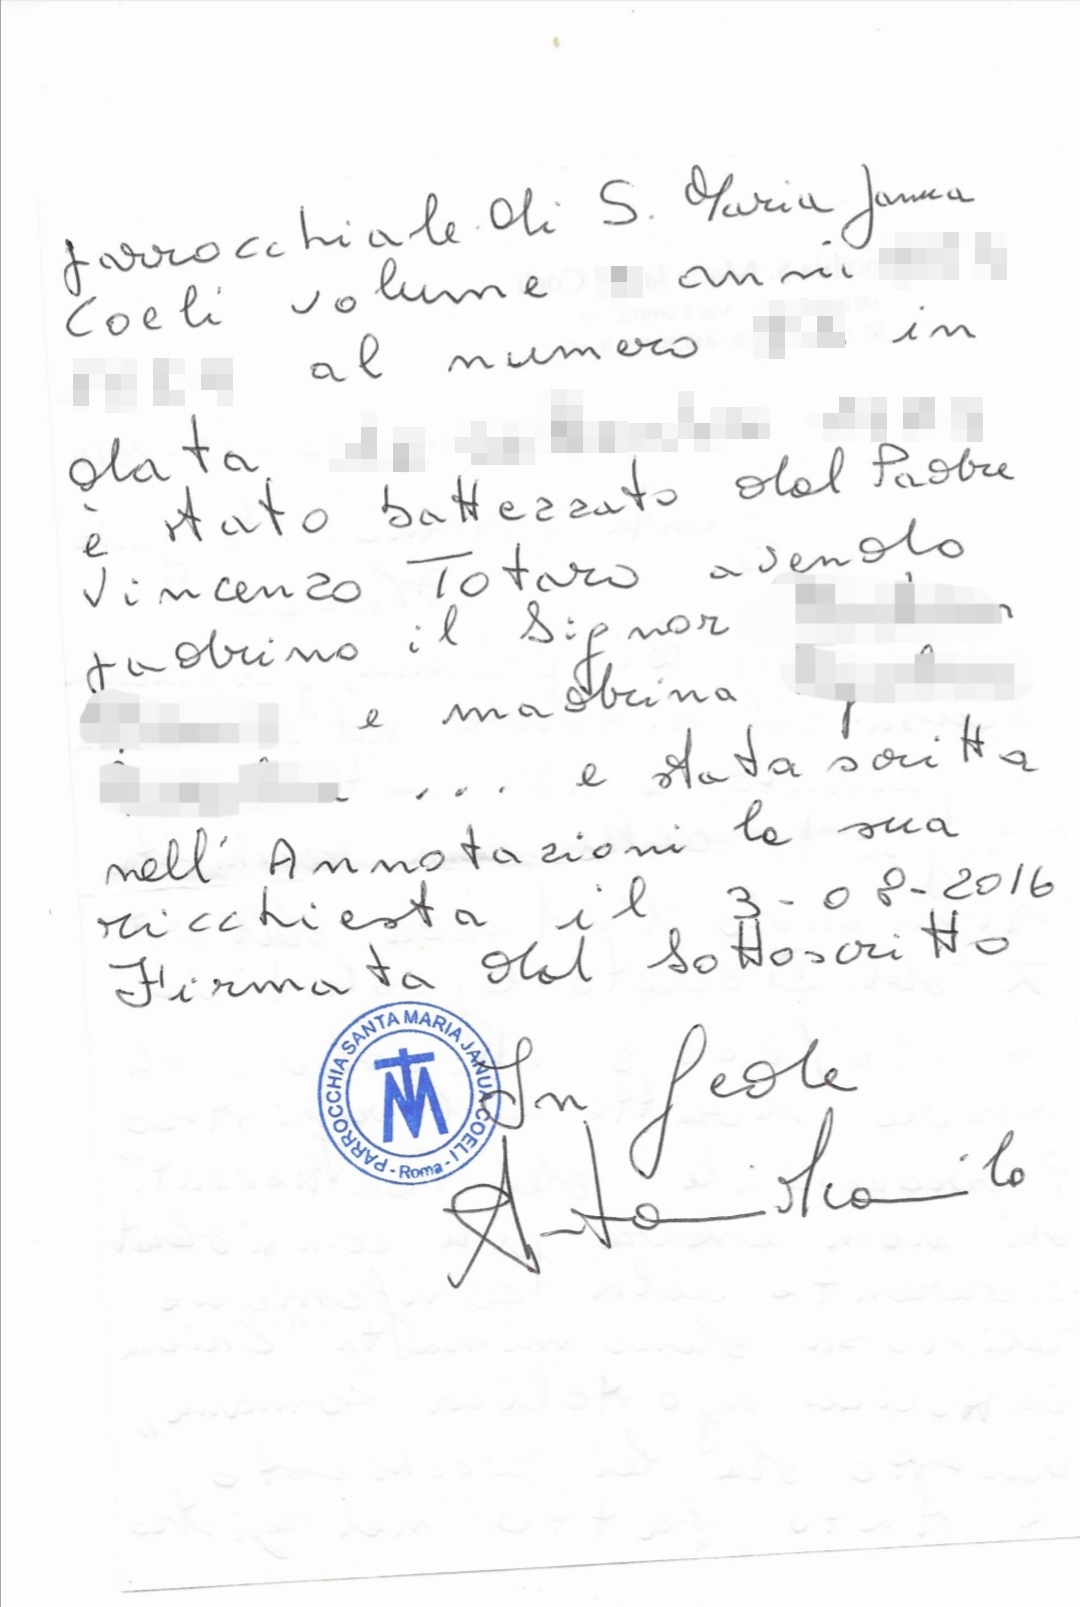 parrocchiale di S. Maria Janua
Coeli volume anni
al numero in
data
è stato battezzato dal Padre
Vincenzo Totaro avendo
padrino il Signor
e madrina
.... e stata scritta
nell' Annotazioni la sua
ricchiesta il 3-08-2016
Firmata dal Sottoscritto
In fede
PARROCCHIA SANTA MARIA JANUA COELI - Roma -